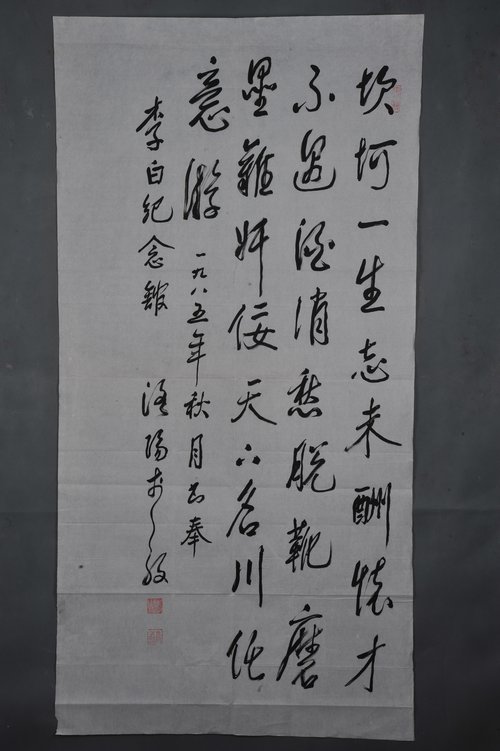 坎坷一生志未酬懷才
不遇酒消愁脱靴磨
墨難奸佞天下名川任
意游 一九八五年秋月书奉
李白紀念館 洛陽